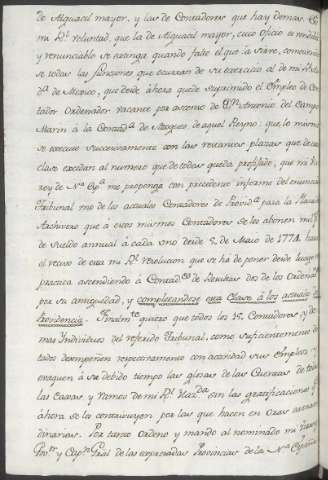 de Alguacil mayor, y las de Contadores que hay demas. Es
mi Rl. voluntad, que la de Alguacil mayor, cuio oficio es vendible
y renunciable se extinga quando falte el que la sirve,
se todas las funciones que ocurran de su exercicio al de mi Rl.
da. de Mexico, que desde ahora quede suprimido el Empleo de Con-
tador Ordenador vacante por ascenso de Dn. Antonio del Campo
Marin à la Contada. de Azogues de aquel Reyno: que lo mismo
se execute succesivamente con las restantes plazas que de esta
clase excedan al numero que de todas queda prefijado, que mi Vi-
rey de Na. Espa. me proponga con precedente informe del enunciado
Tribunal uno de los actuales Contadores de Provida. para la Plaza de
Archivero que à estos mismos Contadores se les abonen mil ps.
de sueldo annual à cada uno desde 5. de Maio de 1774,
el recivo de esta mi Rl. resolucion que se ha de poner desde luego en
practica ascendiendo à Contadres. de Resultas dos de los Ordenadres.
por su antiguedad, y completandose esta Clase à los actuales de
Providencia. Finalmte. quiero que todos los 15. Contadores y de-
mas Individuos del referido Tribunal, como suficientemente do-
tados desempeñen respectivamente con actividad sus Empleos y
evaquen à su debido tiempo las glosas de las Cuentas de todas
las Caxas y Ramos de mi Rl. Hazda. sin las gratificaciones qe.
àhora se les contribuyen por las que hacen en oras extraor-
dinarias. Por tanto Ordeno y mando al nominado mi Virrey
Govr. y Capn. Gral de las expresadas Provincias de la Na. España